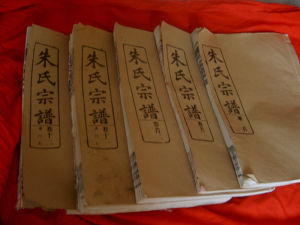 朱氏宗譜
朱氏宗譜
朱氏宗譜
朱氏宗譜
朱氏宗譜